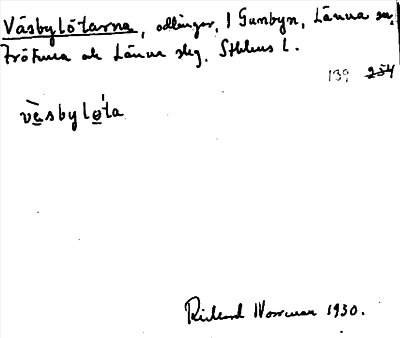 Väsbylötarna, odlingar, i Gumbyn, Länna sn,
Frötuna ok Länna skg. Sthlms l.
139 254
väsbylo̱ta
Rickard Norrman 1930.